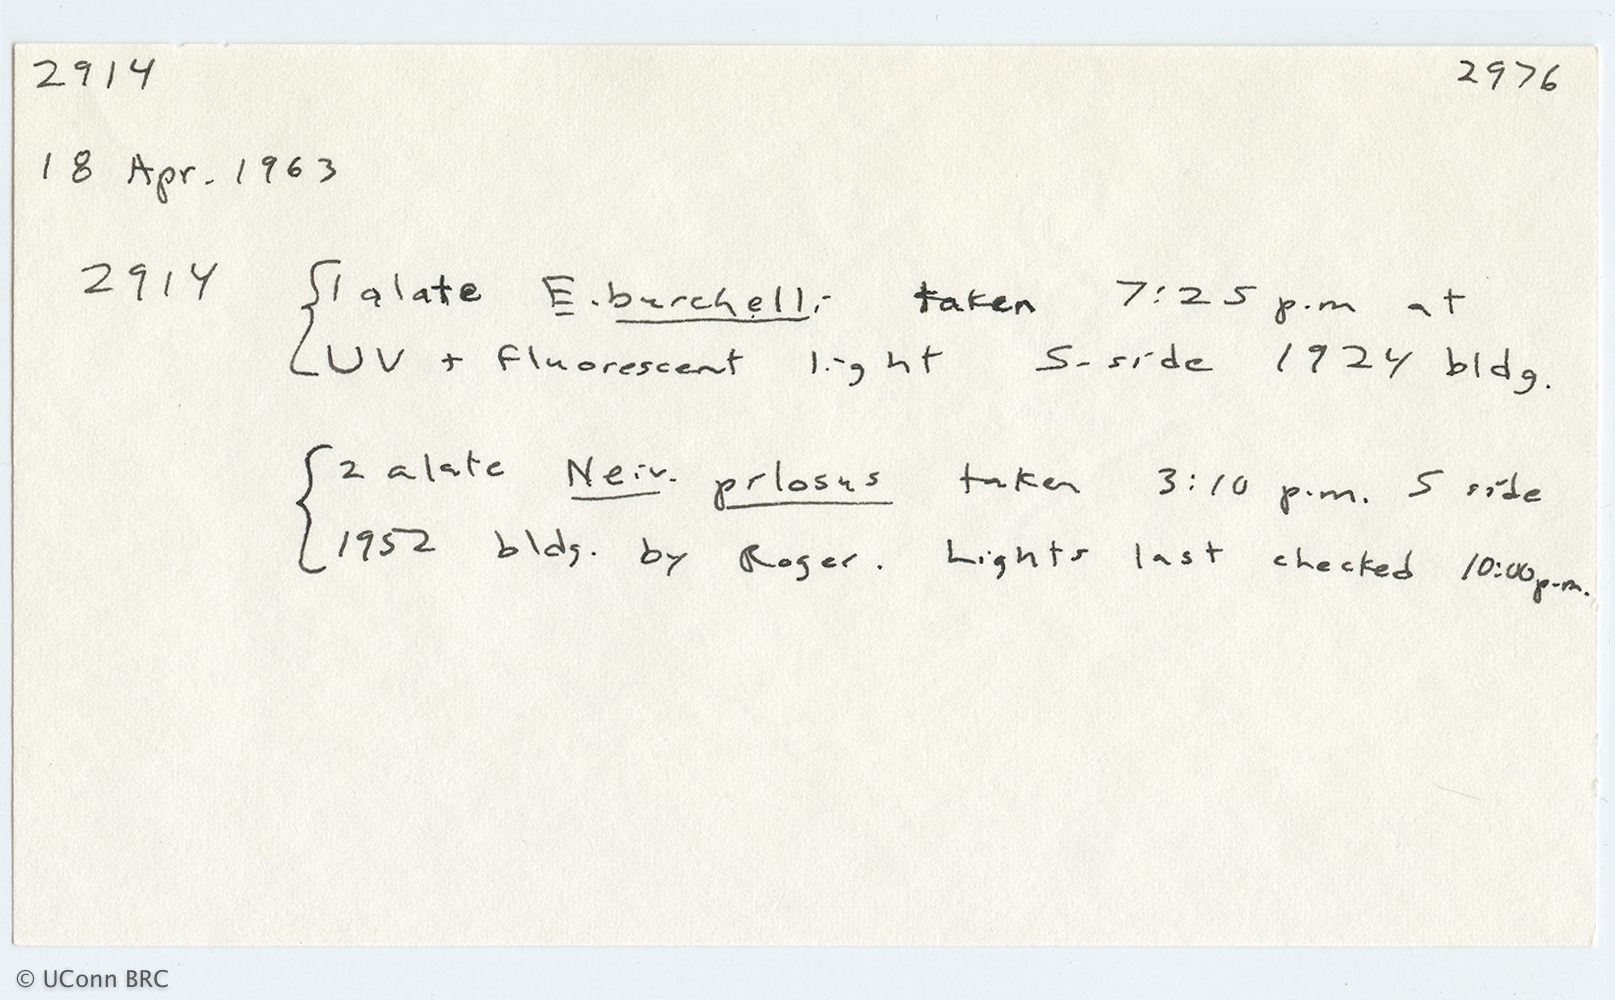 2914 2976
18 Apr. 1963
2914 {1 alate E. burchelli taken 7:25 p.m at
UV + fluorescent light S-side 1924 bldg.
{2 alate Neiv. pilosus taken 3:10 p.m. S side
1952 bldg. by Roger. Lights last checked 10:00 p.m.
© UConn BRC